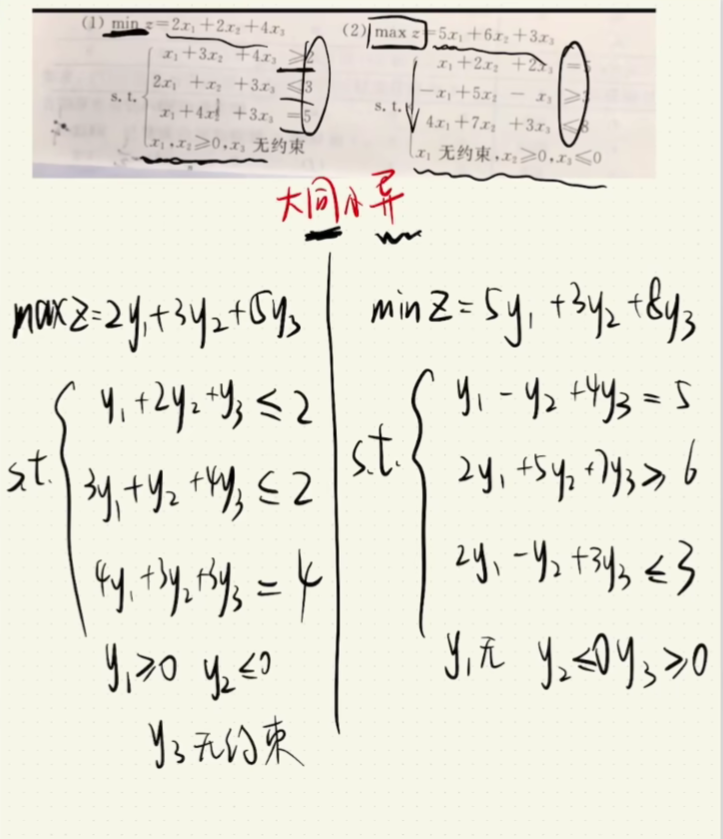 (1) min z=2x₁+2x₂+4x₃
x₁+3x₂ +4x₃ ≥2
2x₁ +x₂ +3x₃ ≤3
s. t.
x₁+4x₂ +3x₃ =5
x₁,x₂≥0,x₃ 无约束
(2) max z=5x₁+6x₂+3x₃
x₁+2x₂ +2x₃ =5
-x₁+5x₂ - x₃ ≥3
s. t.
4x₁+7x₂ +3x₃ ≤8
x₁ 无约束,x₂≥0,x₃≤0
大同小异
max z=2y₁+3y₂+5y₃
y₁+2y₂+y₃≤2
s.t.
3y₁+y₂+4y₃≤2
4y₁+3y₂+3y₃=4
y₁≥0 y₂≤0
y₃无约束
min z=5y₁+3y₂+8y₃
y₁-y₂+4y₃=5
s.t.
2y₁+5y₂+7y₃≥6
2y₁-y₂+3y₃≤3
y₁无 y₂≤0 y₃≥0